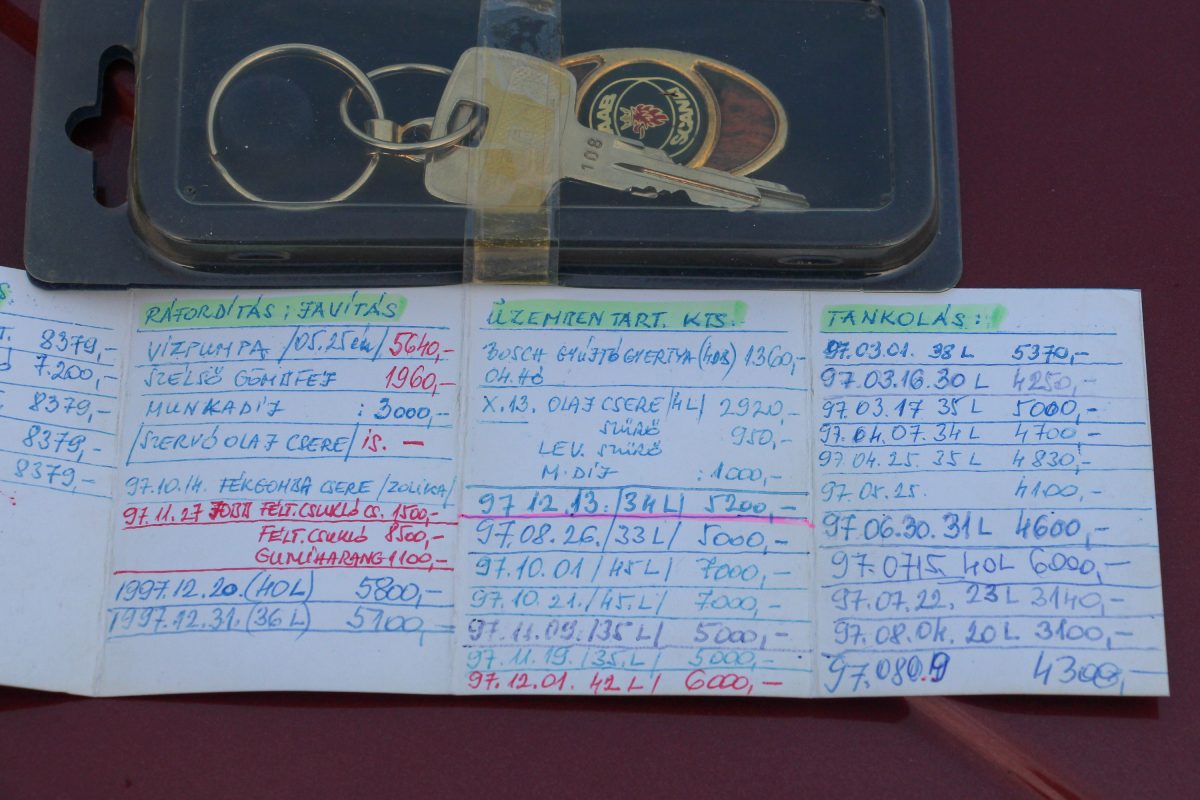 SAAB
SCANIA
108
8379,-
7.200,-
8379,-
8379,-
8379,-
RÁFORDÍTÁS; JAVÍTÁS
VÍZPUMPA /05.25én/ 5640,-
SZÉLSŐ GÖMBFEJ 1960,-
MUNKADÍJ : 3000,-
/SZERVÓ OLAJ CSERE/ is. -
97.10.14. FÉKGOMBA CSERE /ZOLIKA/
97.11.27 JOBB FÉLT.CSUKLÓ CS. 1500,-
FÉLT.CSUKLÓ 8500,-
GUMIHARANG 1100,-
1997.12.20.(40L) 5800,-
1997.12.31.(36L) 5700,-
ÜZEMBEN TART. KTS.
BOSCH GYÚJTÓGYERTYA (4DB) 1360,-
04.HÓ
X.13. OLAJ CSERE /4L/ 2920,-
SZŰRŐ 950,-
LEV. SZŰRŐ
M.DÍJ : 1000,-
97 12.13. /34L/ 5200,-
97.08.26. /33L/ 5000,-
97.10.01 /45L/ 7000,-
97.10.21. /45.L/ 7000,-
97.11.09. /35L/ 5000,-
97.11.19. /35.L/ 5000,-
97.12.01. 42L/ 6000,-
TANKOLÁS:
97.03.01. 38L 5370,-
97.03.16. 30L 4250,-
97.03.17 35L 5000,-
97.04.07. 34L 4700,-
97.04.25. 35L 4830,-
97.05.25. 4100,-
97.06.30. 31L 4600,-
97.0715. 40L 6000,-
97.07.22. 23L 3140,-
97.08.04. 20L 3100,-
97.080.9 4300,-